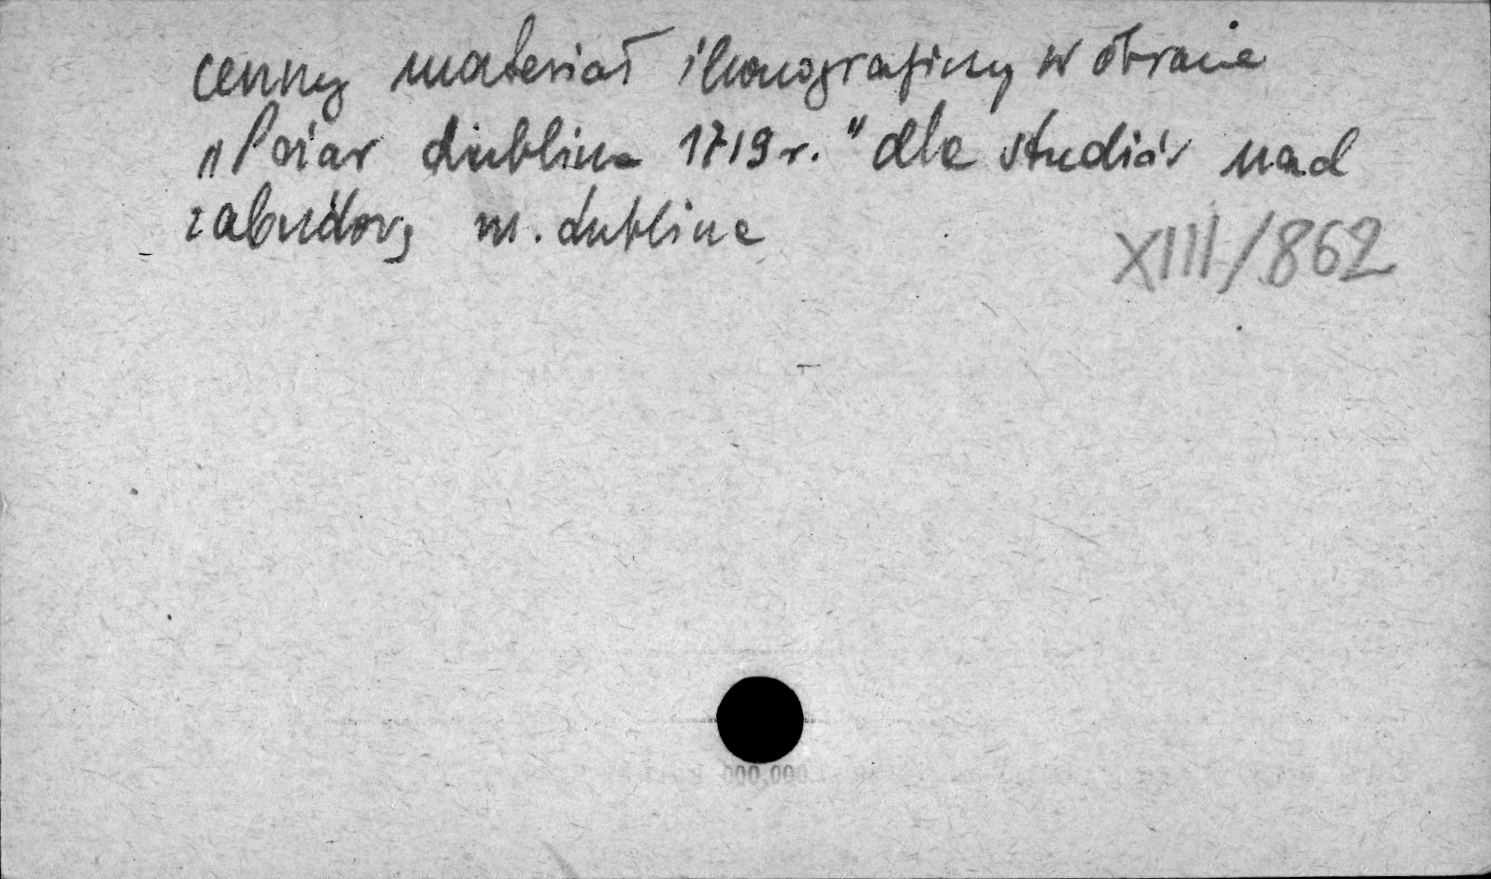 cenny materiał ikonograficzny w obrazie
„Pożar Lublina 1719 r." dla studiów nad
zabudową m. Lublina
XIII/862